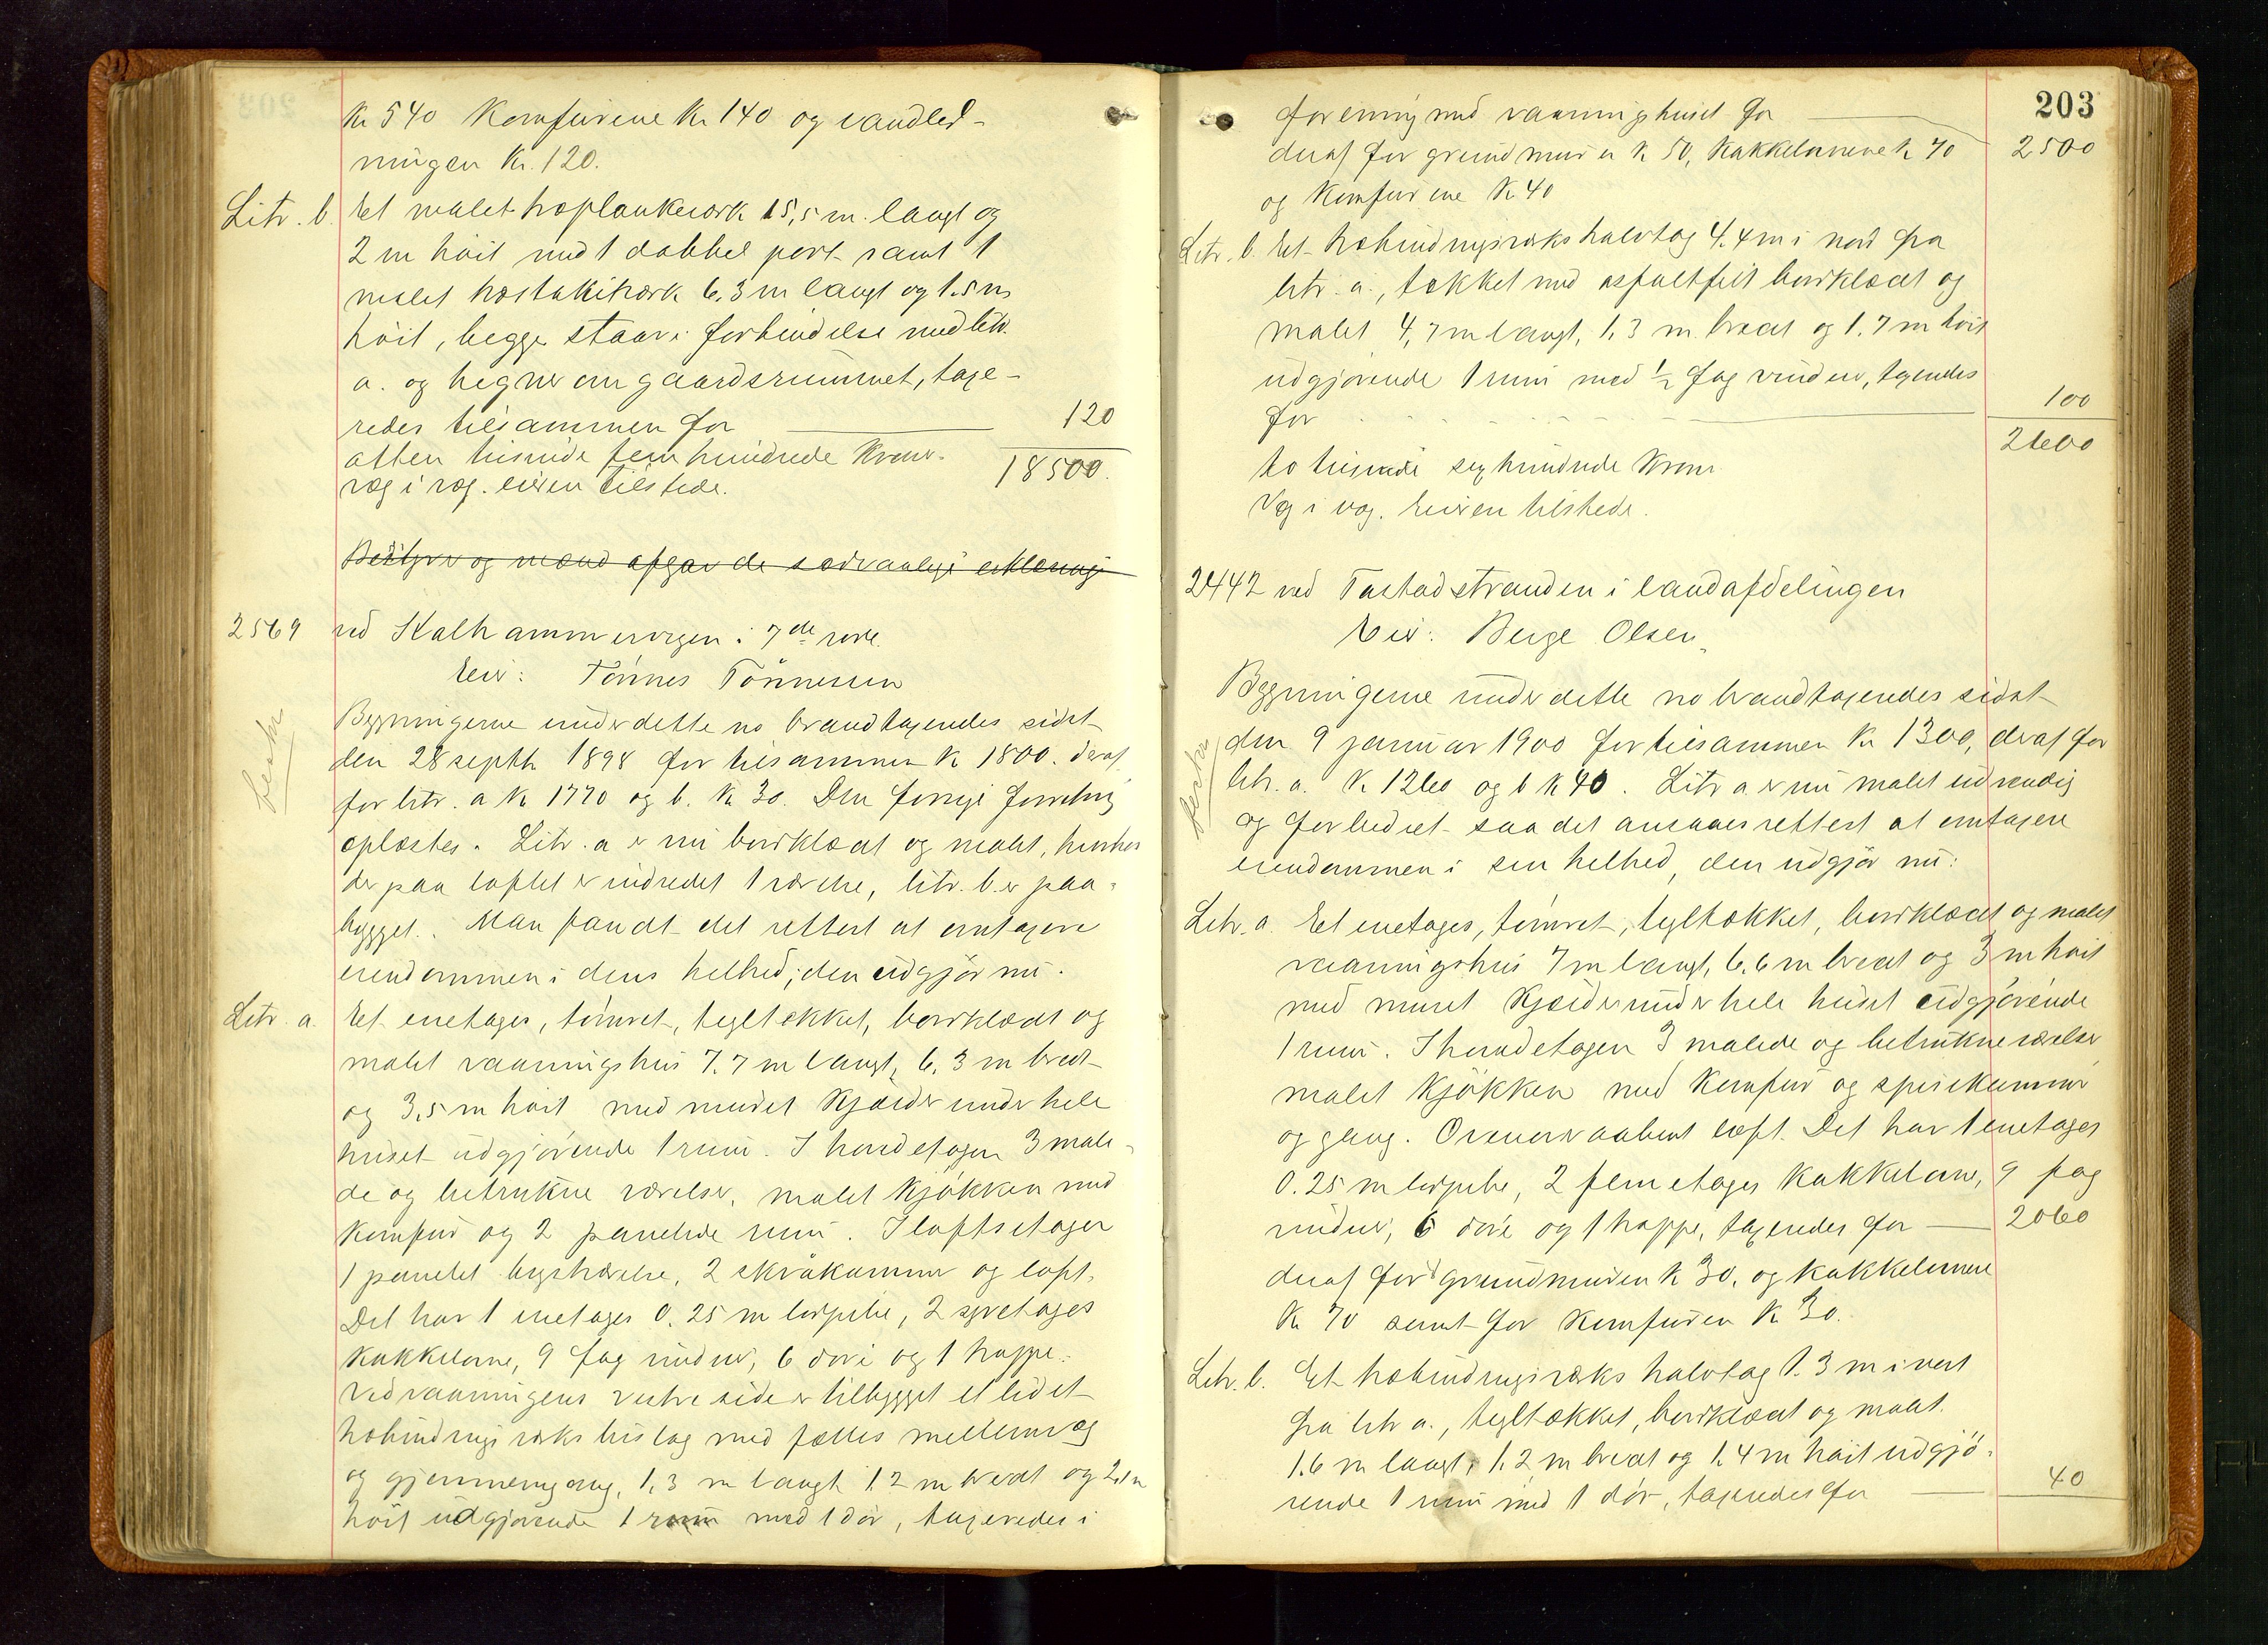 Kr 540 Komfurene Kr 140 og vandled-
ningen Kr. 120.
Litr. b. Et malet træplankeværk 15,5 m. langt og
2 m höit med 1 dobbel port samt 1
malet træstakitværk 6,3 m langt og 1.5 m
höit, begge staar i forbindelse med litr.
a. og hegner om gaardsrummet, taxe-
redes tilsammen for 120
atten tusinde fem hundrede Kroner. 18500.
væg i væg. eieren tilstede.
Bestyrer og mænd afgav de sædvanlige erklæring
2569 ved Kalhammervigen i 7de rode.
Eier: Tönnes Tönnesen
Bygningerne under dette no brandtaxeredes sidst
den 28 septbr 1898 for tilsammen Kr 1800. deraf
for litr. a Kr 1770 og b. Kr 30. Den forrige forretning
oplæstes. Litr. a er nu bordklædt og malet,
der paa loftet er indredet 1 værelse, litr. b. er paa-
bygget. Man fandt det rettest at omtaxere
eiendommen i dens helhed; den udgjör nu.
Litr. a. Et enetages, tömret, tegltækket, bordklædt og
malet vaaningshus 7.7 m langt, 6,3 m bredt
og 3,5 m höit med muret Kjælder under hele
huset udgjörende 1 rum. I hovedetagen 3 male-
de og betrukne værelser, malet Kjökken med
Komfur og 2 panelede rum. I loftsetagen
1 panelet kvistværelse, 2 skråkammer og loft.
Det har 1 enetages 0.25 m lerpibe, 2 syvetages
Kakkelovne, 9 fag vinduer, 6 döre og 1 trappe.
Ved vaaningens vestre side er tilbygget et lidet
træbindingsværks bislag med fælles mellemvæg
og gjennemgang, 1,3 m langt 1.2 m bredt og 2,1 m
höit udgjörende 1 rum med 1 dör, taxeredes i
203
forening med vaaningshuset for
deraf for grundmuren Kr 50, Kakkelovnene Kr 70 2500
og Komfurene Kr 40
Litr. b. Et træbindingsværks halvtag 4.4 m i nord fra
litr. a., tækket med asfaltfilt bordklædt og
malet 4,7 m langt, 1,3 m. bredt og 1.7 m höit
udgjörende 1 rum med 1/2 fag vinduer, taxeredes
for 100
2600
to tusinde sexhundrede Kroner.
Væg i væg. Eieren tilstede.
2442 ved Tastadstranden i landafdelingen
Eier: Berge Olsen
Bygningerne under dette no brandtaxeredes sidst
den 9 januar 1900 for tilsammen Kr 1300, deraf for
litr. a. Kr 1260 og b Kr 40. Litr a er nu malet udvendig
og forbedret saa det ansaaes rettest at omtaxere
eiendommen i sin helhed, den udgjör nu:
Litr. a. Et enetages, tömret, tegltækket, bordklædt og malet
vaaningshus 7 m langt, 6,6 m bredt og 3 m höit
med muret Kjælder under hele huset udgjörende
1 rum. I hovedetagen 3 malede og betrukne værelser
malet Kjökken med Komfur og spisekammer
og gang. Ovenover aabent loft. Det har 1 enetages
0.25 m lerpibe, 2 femetages Kakkelovne, 9 fag
vinduer, 6 döre og 1 trappe, taxeredes for 2060
deraf for grundmuren Kr 30, og Kakkelovnene
Kr 70 samt for Komfuren Kr 30.
Litr. b. Et træbindingsværks halvtag 1.3 m i vest
fra litr a., tegltækket, bordklædt og malet.
1.6 m langt, 1.2 m bredt og 1,4 m höit udgjö-
rende 1 rum med 1 dör, taxeredes for 40